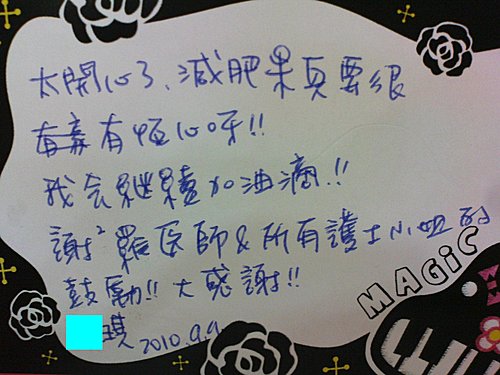 太開心了、減肥果真要很
有恆心呀!!
我会継續加油滴!!
謝²羅医師&所有護士小姐的
鼓勵!! 大感謝!!
琪 2010.9.9
MAGIC